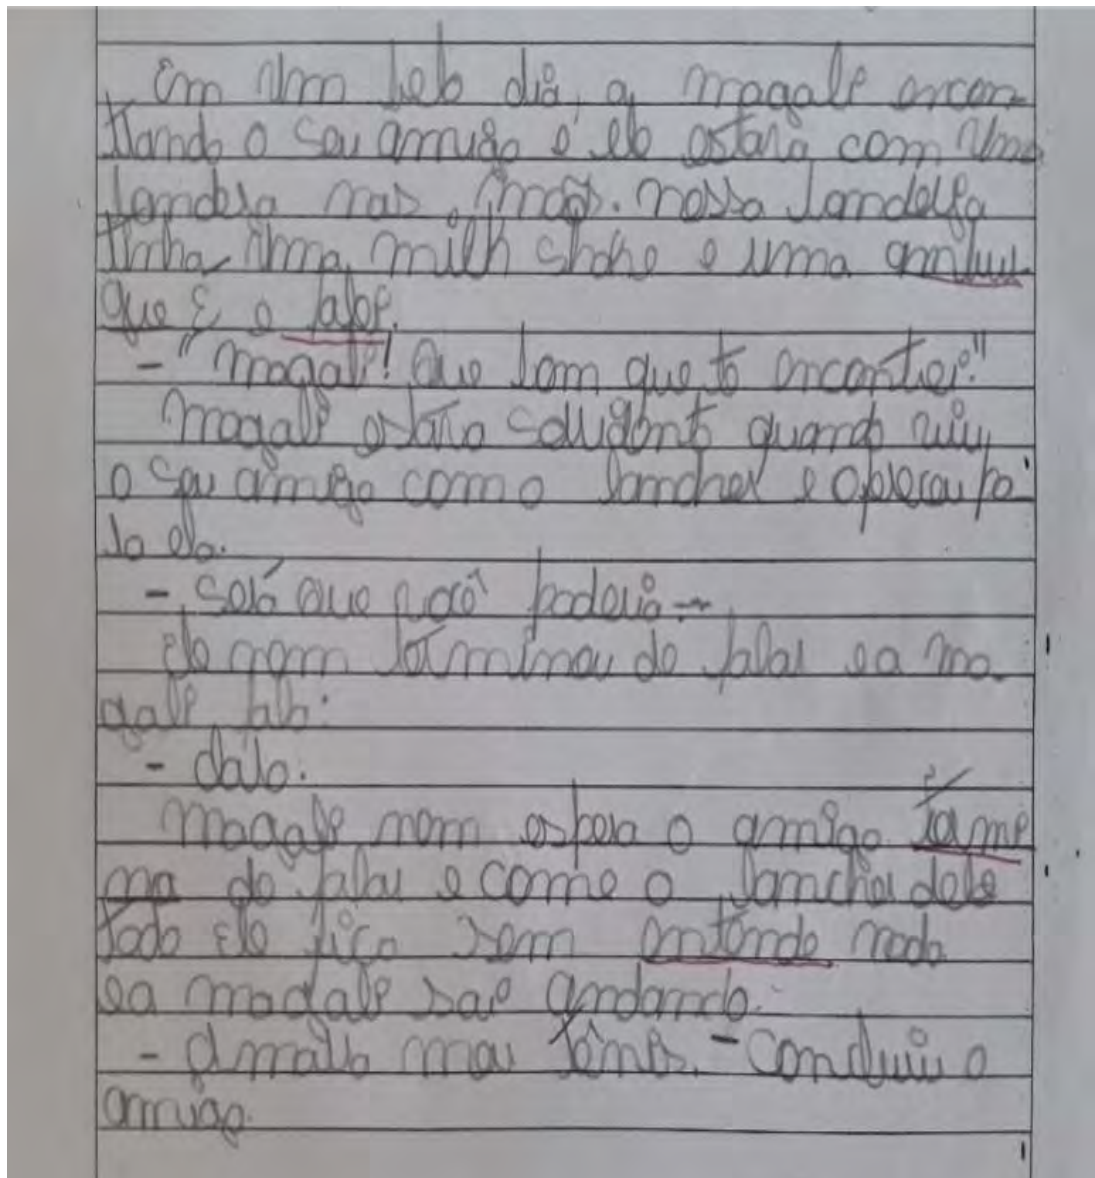 Em um belo dia, a magali encon-
trando o seu amigo e ele estava com uma
bandeja nas mãos. nessa bandeija
tinha uma milk shake e uma
que é o
- "magali! Que bom que te encontrei."
magali estava sorridente quando viu
o seu amigo com o lanches e ofereceu pa
ra ela.
- será que você poderia -
ele nem terminou de falar e a ma
gali fala:
- claro.
magali nem espera o amigo term
na de falar e come o lanche dele
todo ele fico sem entende nada
e a magali sai andando.
- amarra meu tênis. - concluiu o
amigo.